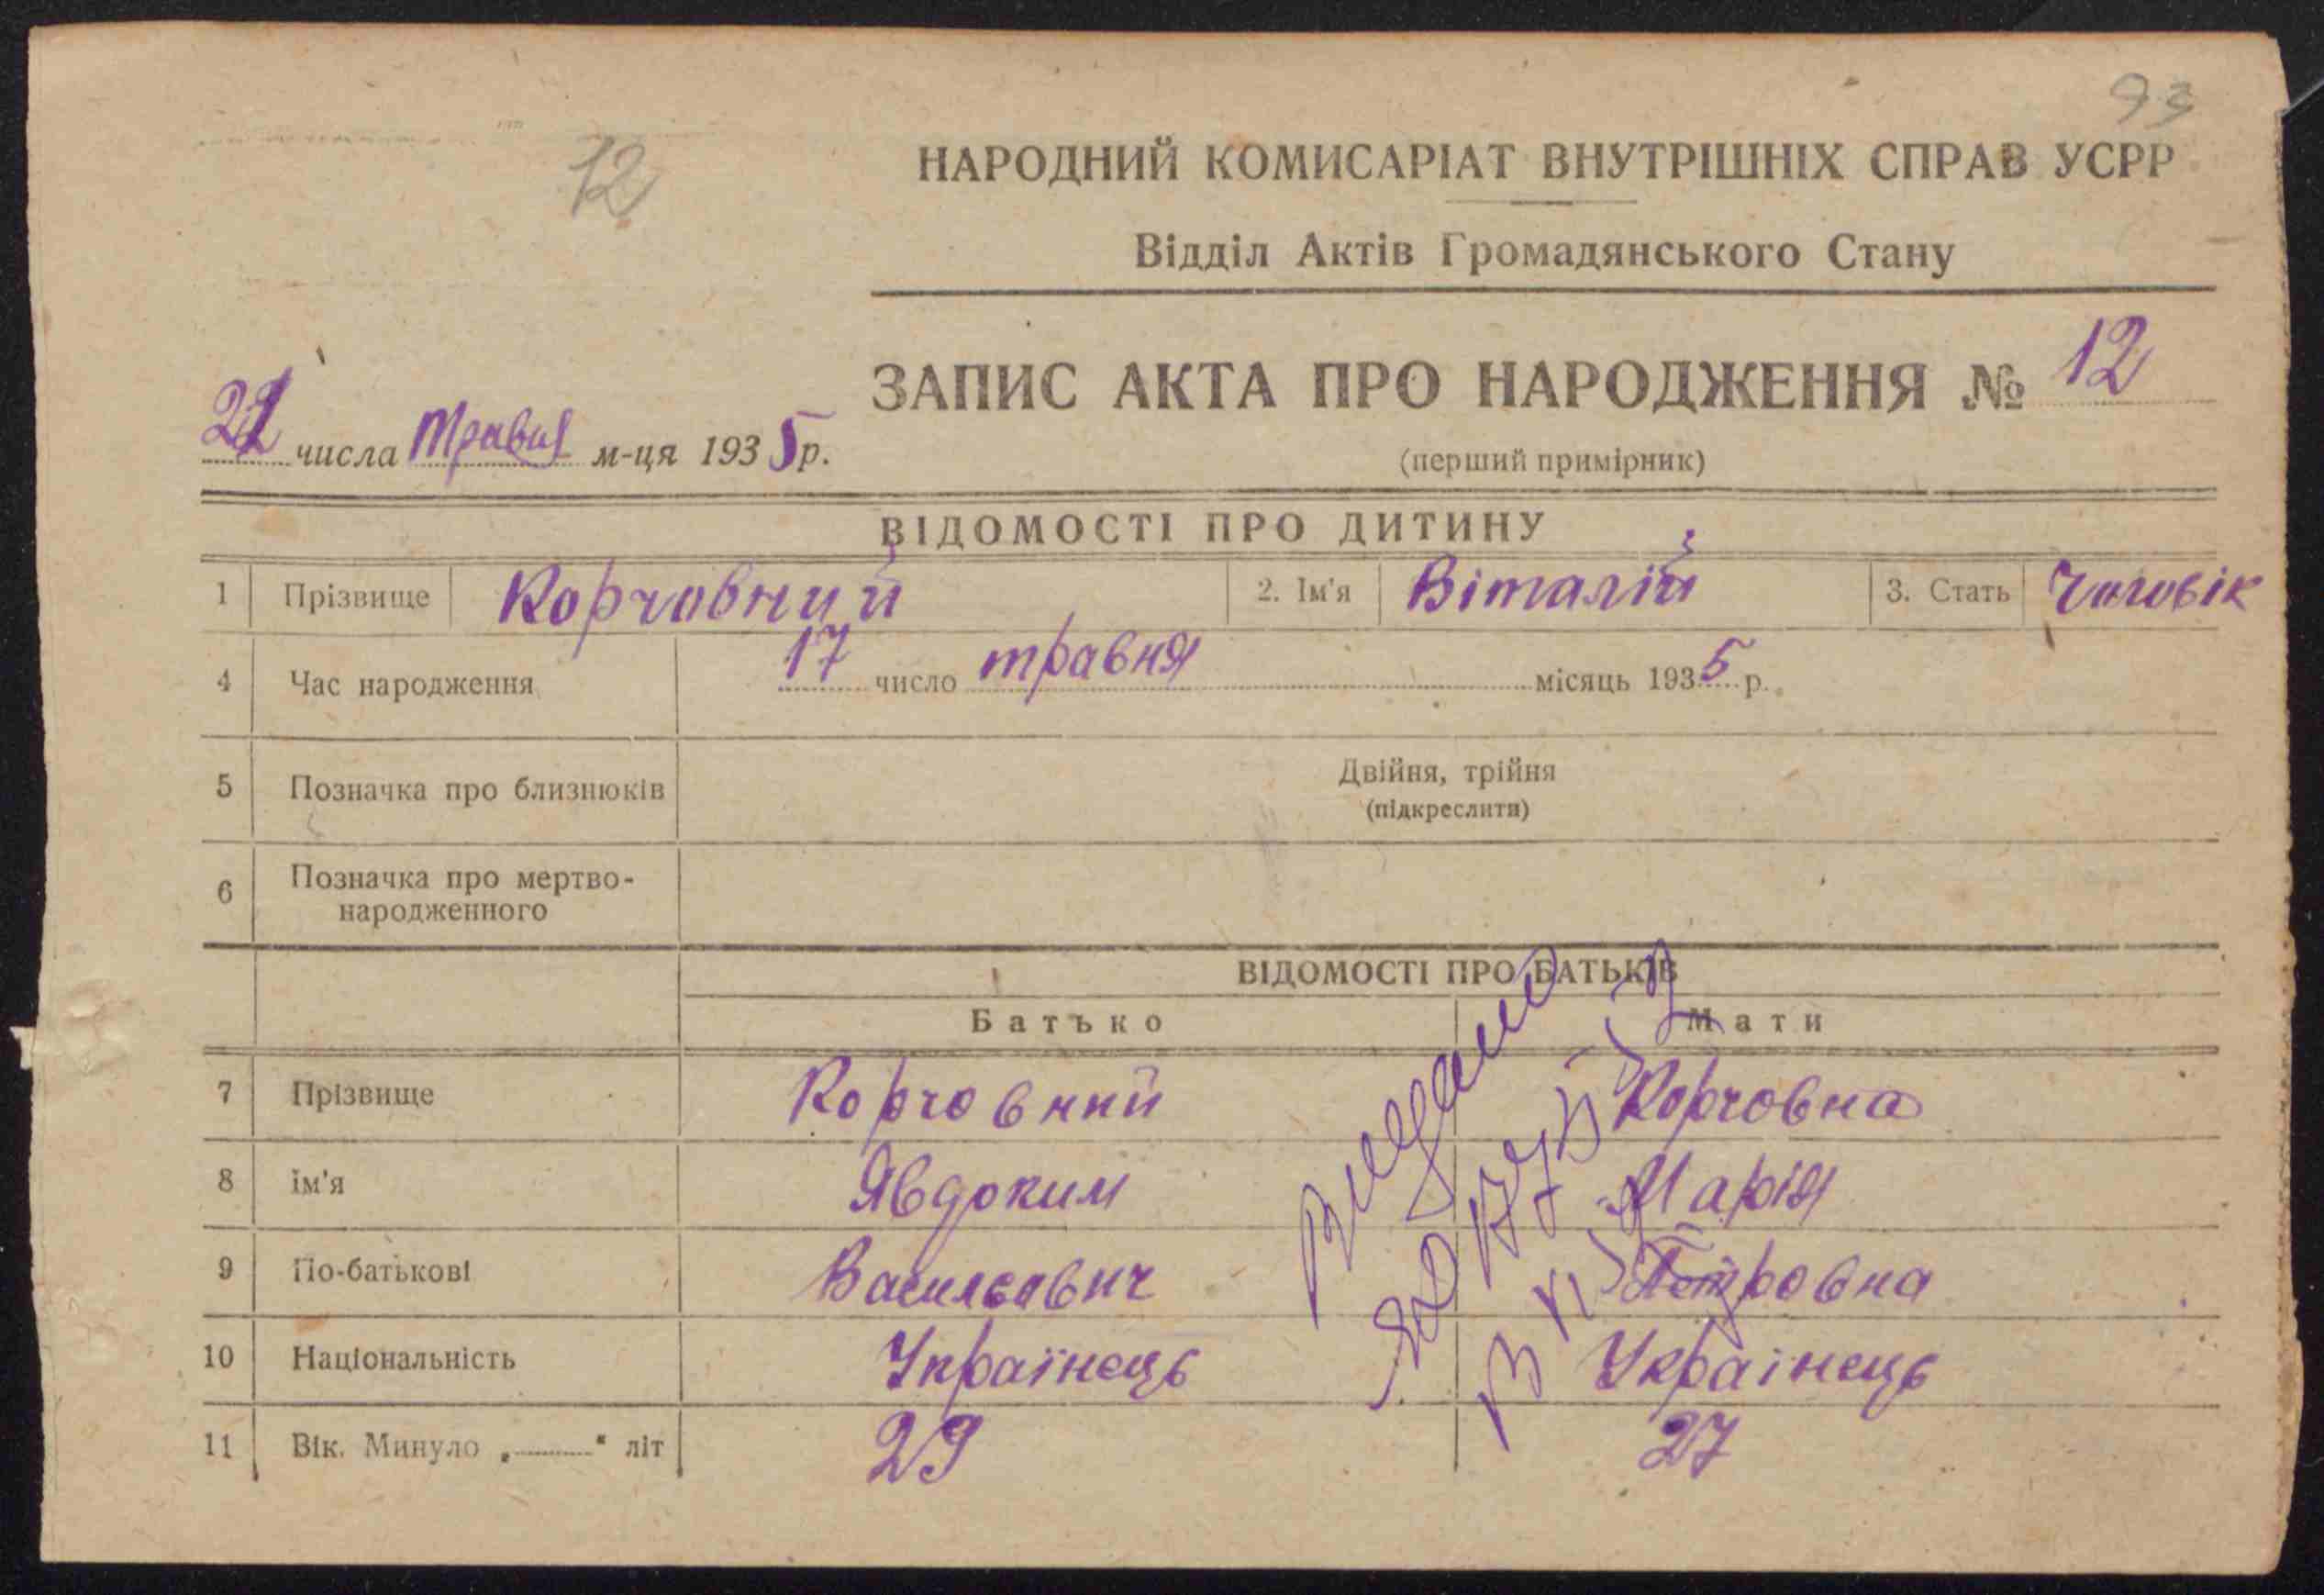 93
12
НАРОДНИЙ КОМИСАРІАТ ВНУТРІШНІХ СПРАВ УСРР
Відділ Актів Громадянського Стану
ЗАПИС АКТА ПРО НАРОДЖЕННЯ № 12
числа травня м-ця 1935 р.
(перший примірник)
ВІДОМОСТІ ПРО ДИТИНУ
1 Прізвище Корчовний 2. Ім'я Віталій 3. Стать Чоловік
4 Час народження 17 число травня місяць 1935 р.
5 Позначка про близнюків Двійня, трійня
(підкреслити)
6 Позначка про мертво-
народженного
ВІДОМОСТІ ПРО БАТЬКІВ
Батько Мати
7 Прізвище Корчовний Корчовна
8 ім'я Явдоким Марія
9 По-батькові Васильович Петровна
10 Національність Українець Українець
11 Вік. Минуло „ “ літ 29 27
Видано